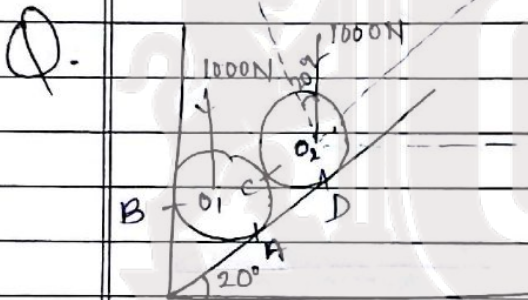 Q.
1000N
1000N
O₂
B
O₁
C
D
A
20°